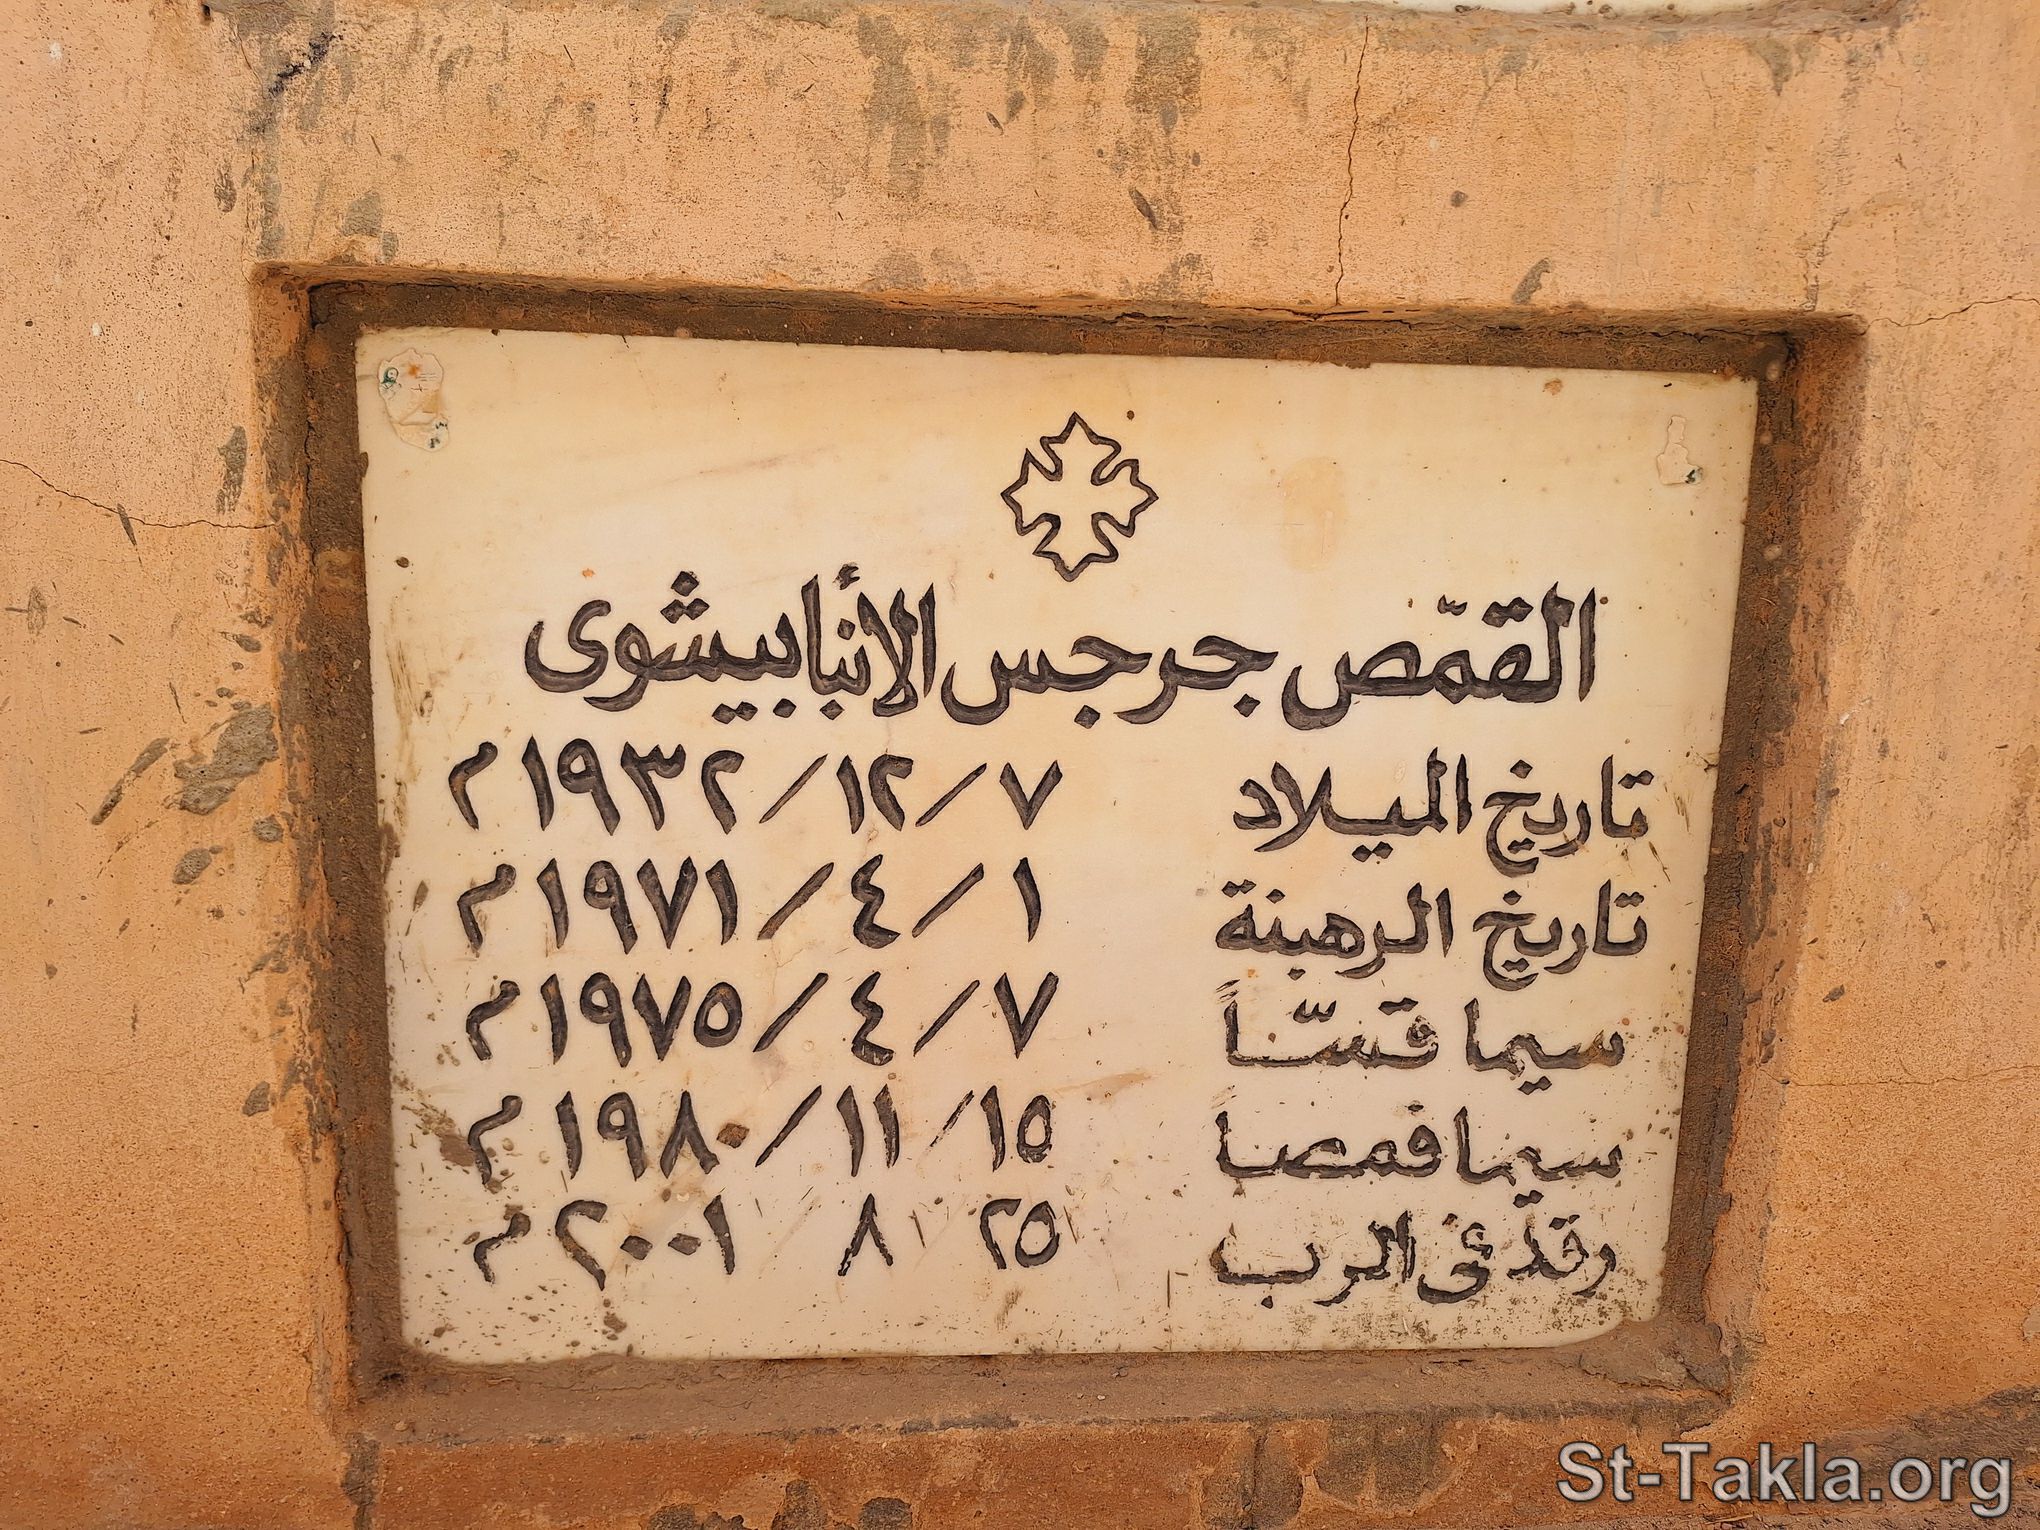 القمّص جرجس الأنبا بيشوى
تاريخ الميلاد ٧/١٢/١٩٣٢م
تاريخ الرهبنة ١/٤/١٩٧١م
سيما قسّاً ٧/٤/١٩٧٥م
سيما قمصاً ١٥/١١/١٩٨٠م
رقد فى الرب ٢٥ ٨ ٢٠٠١م
St-Takla.org